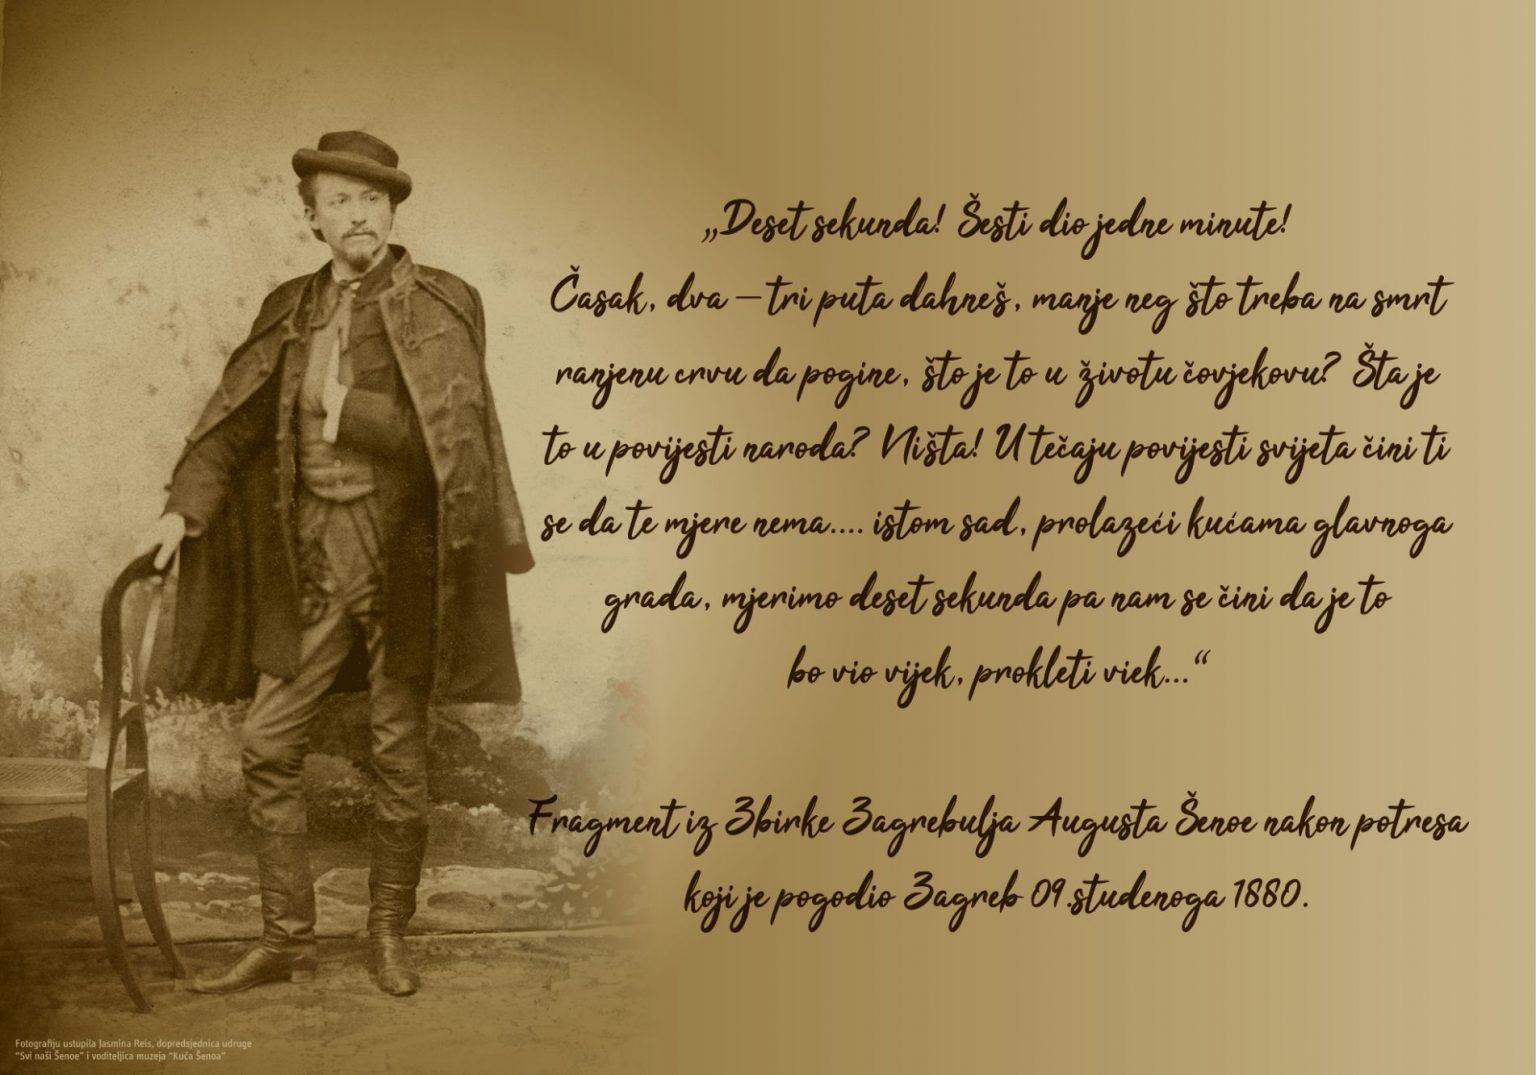 „Deset sekunda! Šesti dio jedne minute!
Časak, dva – tri puta dahneš, manje neg što treba na smrt
ranjenu crvu da pogine, što je to u životu čovjekovu? Šta je
to u povijesti naroda? Ništa! U tečaju povijesti svijeta čini ti
se da te mjere nema.... istom sad, prolazeći kućama glavnoga
grada, mjerimo deset sekunda pa nam se čini da je to
bo vio vijek, prokleti viek...“
Fragment iz Zbirke Zagrebulja Augusta Šenoe nakon potresa
koji je pogodio Zagreb 09.studenoga 1880.
Fotografiju ustupila Jasmina Reis, dopredsjednica udruge
“Svi naši Šenoe” i voditeljica muzeja “Kuća Šenoa”